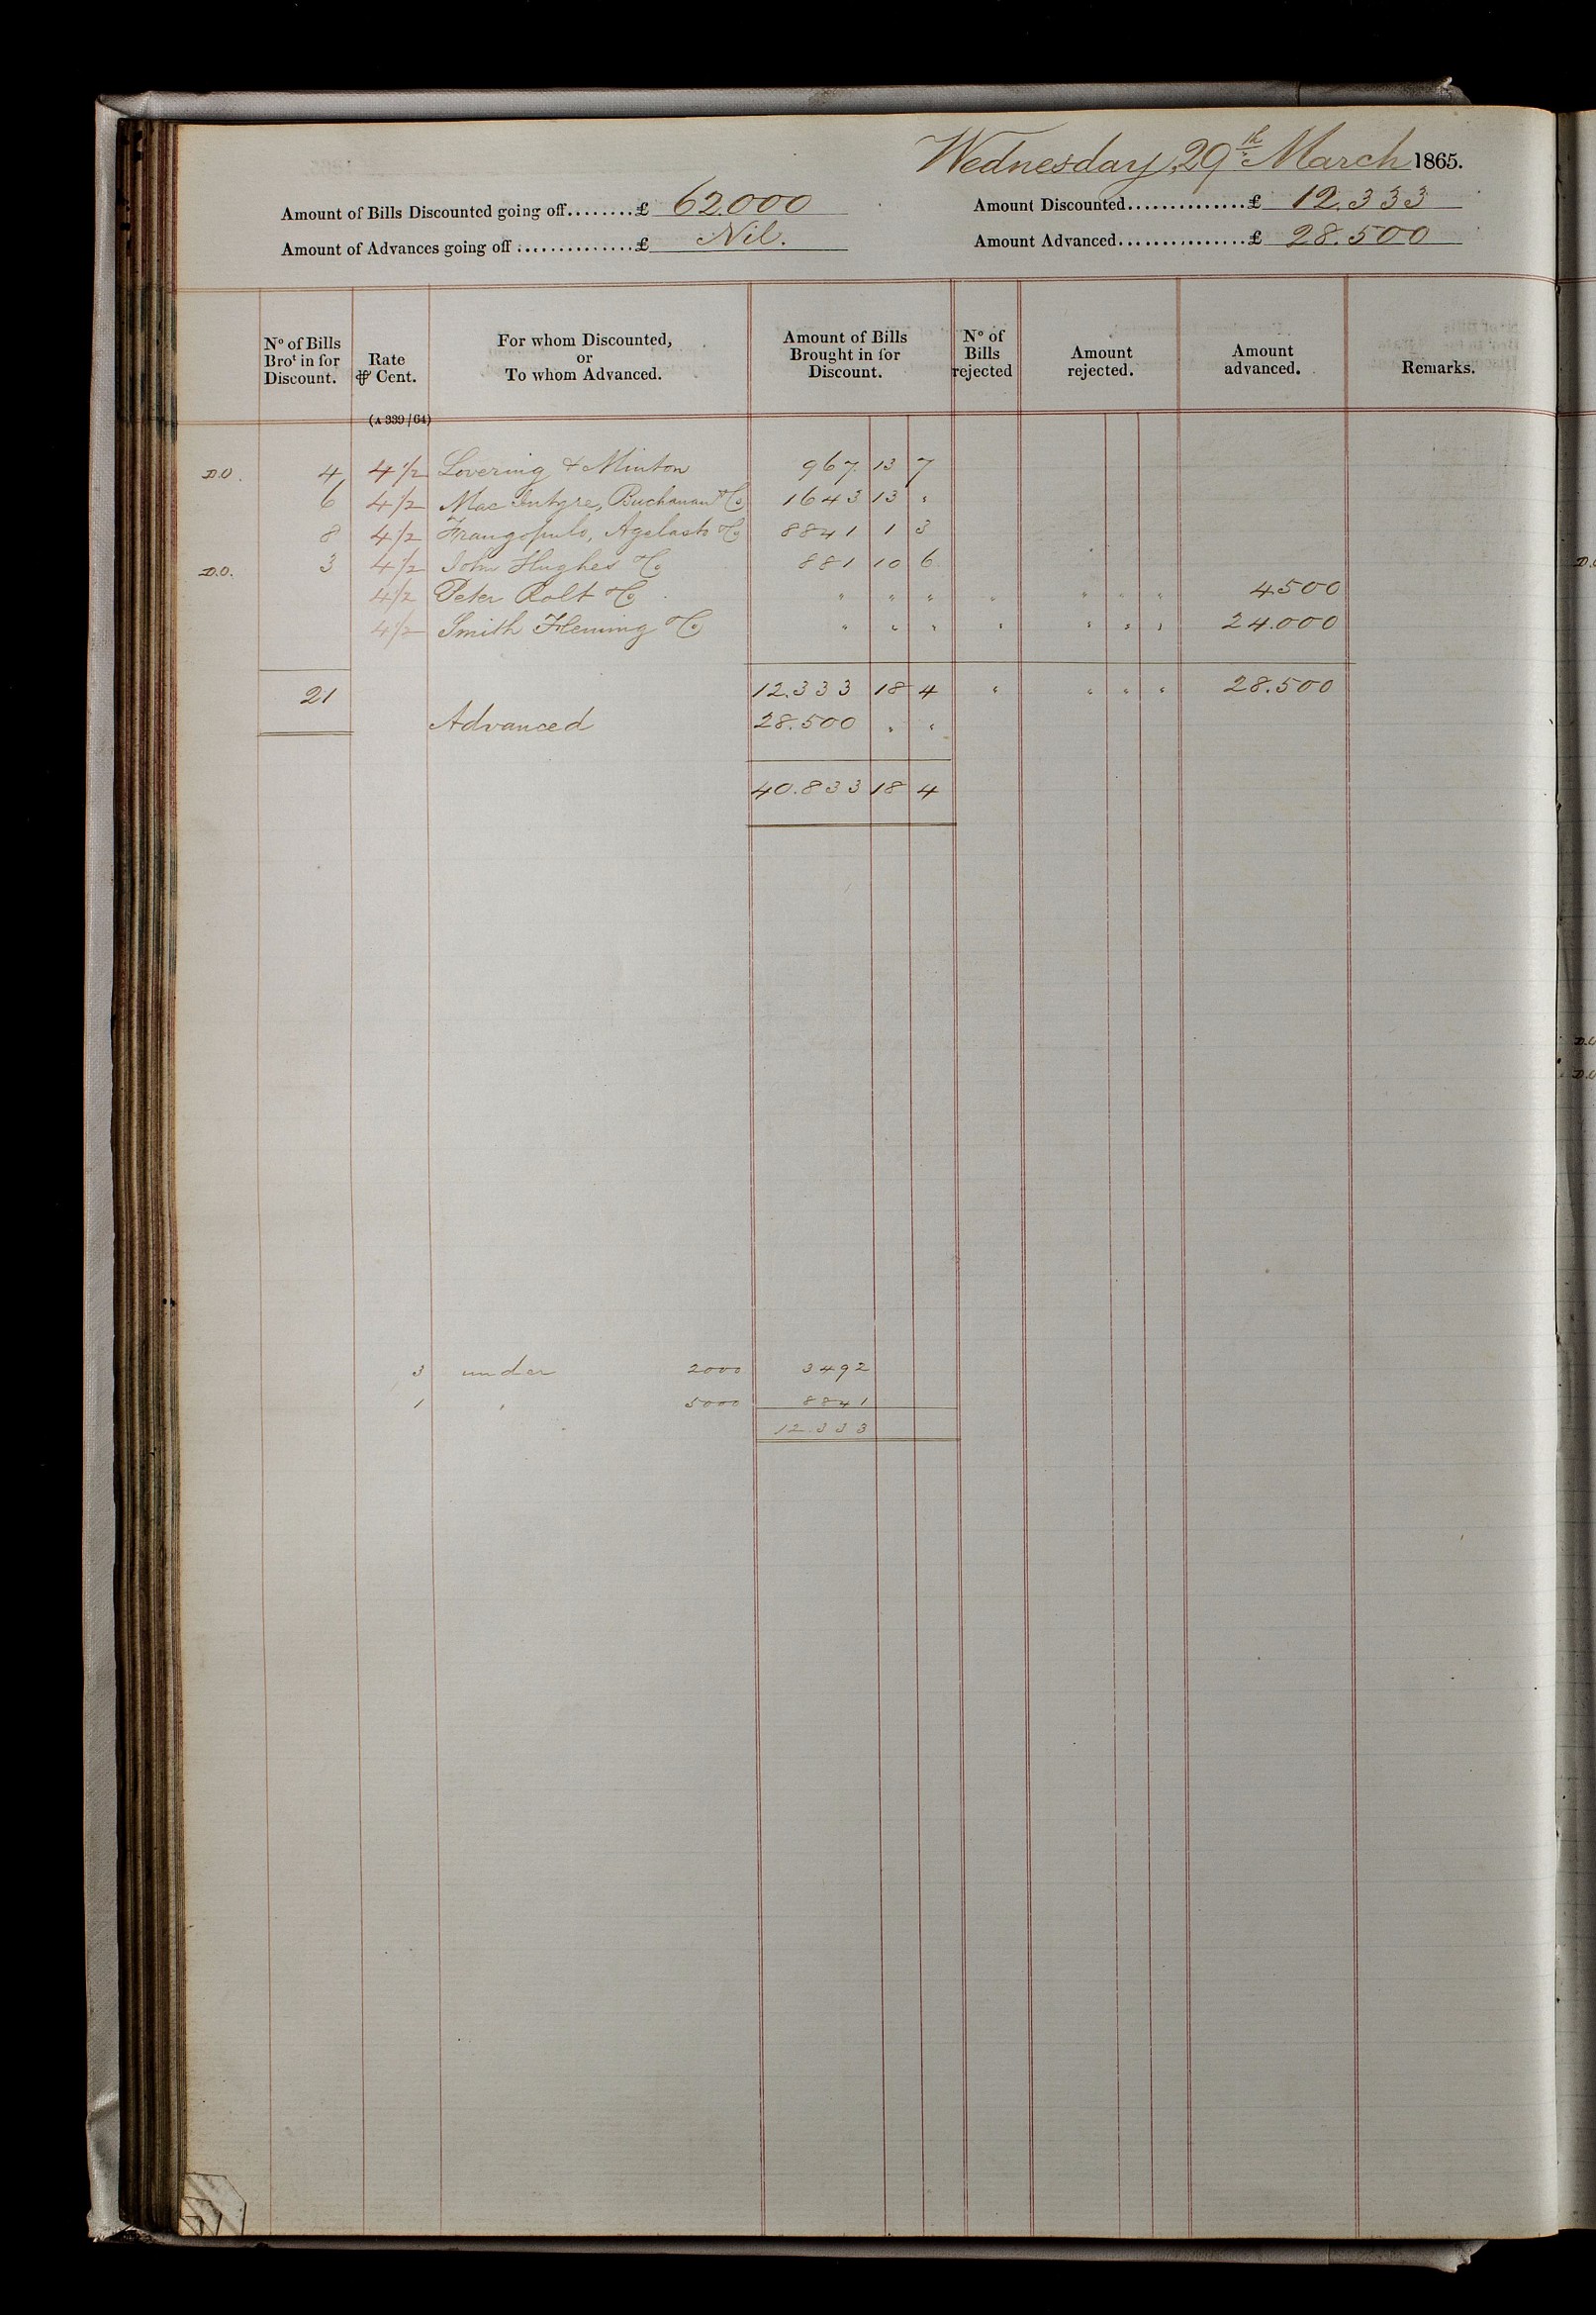 Wednesday, 29th March 1865.
Amount of Bills Discounted going off........£ 62.000 Amount Discounted..............£ 12.333
Amount of Advances going off..............£ Nil. Amount Advanced...............£ 28.500
No of Bills Brot in for Discount. Rate ℔ Cent. For whom Discounted, or To whom Advanced. Amount of Bills Brought in for Discount. No of Bills rejected Amount rejected. Amount advanced. Remarks.
(A 339/64)
D.O. 4 4 1/2 Lovering & Minton 967. 13 7
6 4 1/2 Mac Intyre, Buchanan & Co 1643 13 "
8 4 1/2 Frangopulo, Agelasto & Co 8841 1 3
D.O. 3 4 1/2 John Hughes & Co 881 10 6
4 1/2 Peter Rolt & Co " " " " " " " 4500
4 1/2 Smith Fleming & Co " " " " " " " 24.000
21 12.333 18 4 " " " " 28.500
Advanced 28.500 " "
40.833 18 4
3 under 2000 3492
1 " 5000 8841
12.333